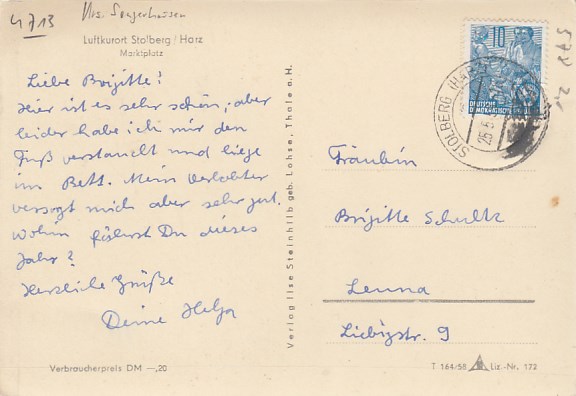 4713
Krs. Sangerhausen
Luftkurort Stolberg / Harz
Marktplatz
Liebe Brigitte!
Hier ist es sehr schön, aber
leider habe ich mir den
Fuß verstaucht und liege
im Bett. Mein Verlobter
versogt mich aber sehr gut.
Wohin fährst Du dieses
Jahr?
Herzliche Grüße
Deine Helga
Verbraucherpreis DM —,20
Verlag Ilse Steinhilb geb. Lohse, Thale a. H.
10
DEUTSCHE
DEMOKRATISCHE
STOLBERG (HARZ)
Fräulein
Brigitte Schultz
Leuna
Liebigstr. 9
T 164/58 Liz.-Nr. 172